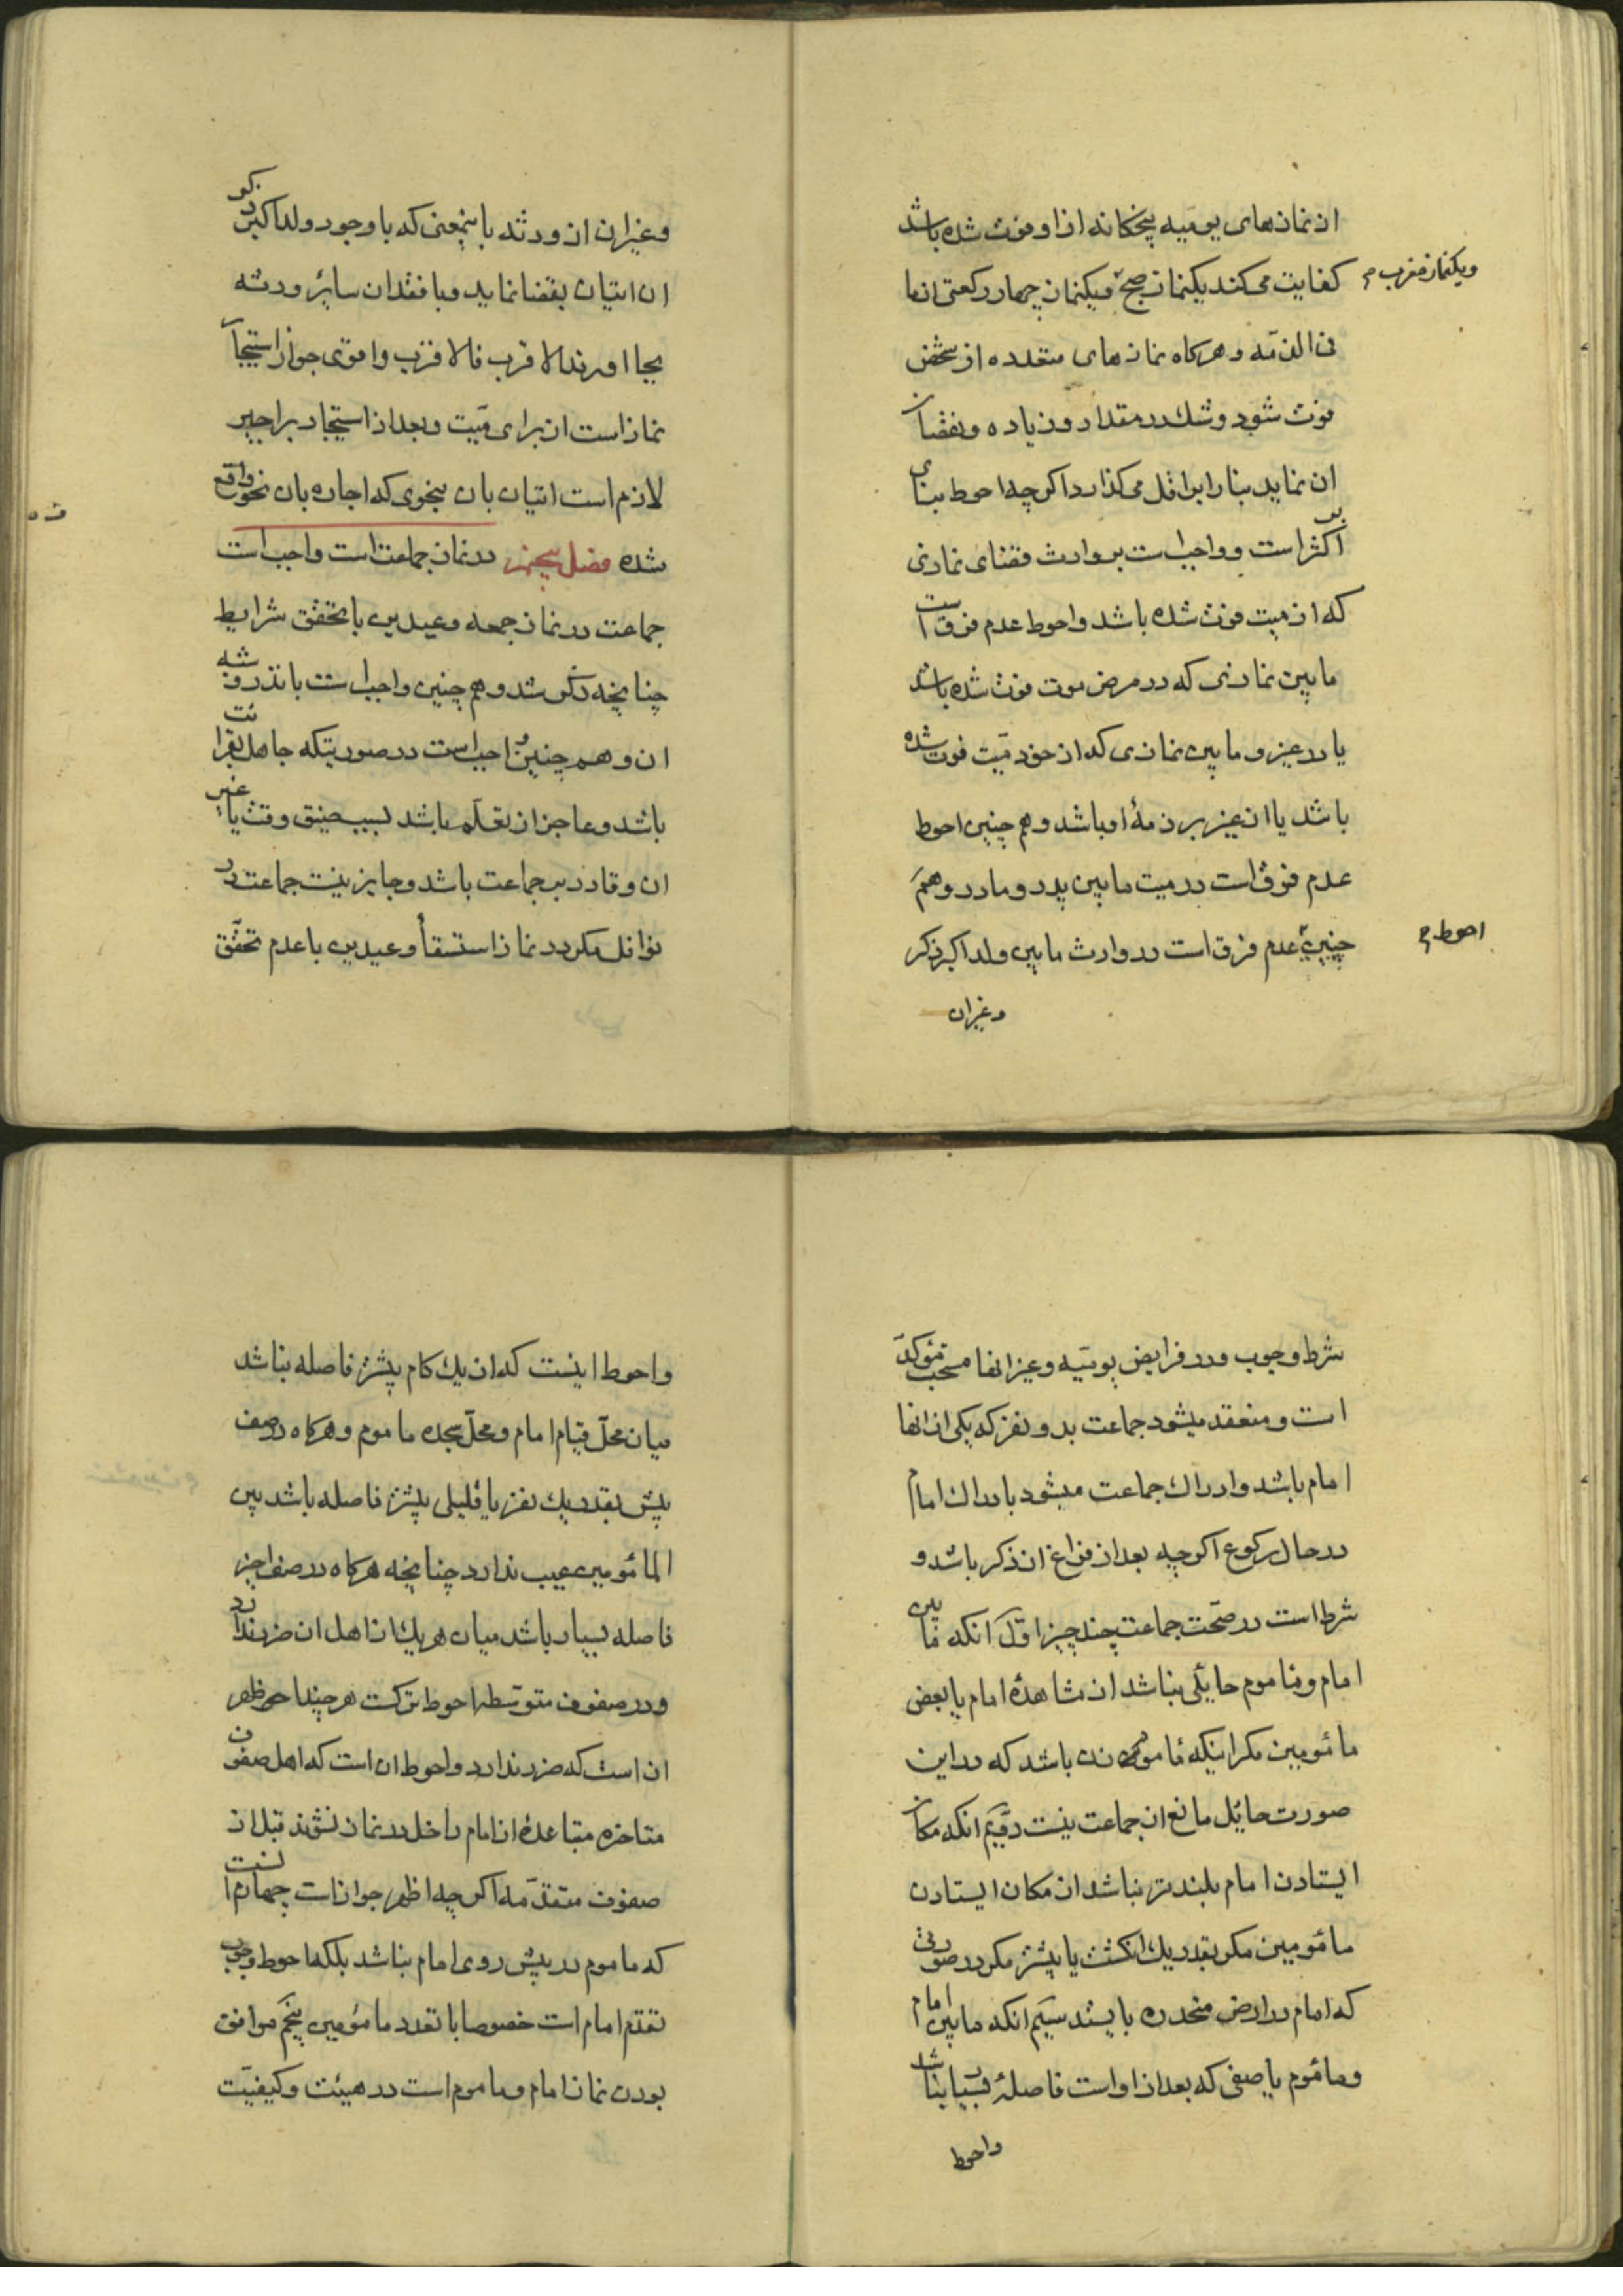 از نمازهای یومیه پنجگانه از او فوت شده باشد
کفایت میکند یکنماز صبح و یکنماز چهار رکعتی از ما
ویکنماز مغرب م
فی الذمّه و هرکاه نمازهای متعدده از شخص
فوت شود و شك در مقدار و زیاده و نقصان
ان نماید بنا را بر اقل میکذارد اکرچه احوط بنای
بر اکثر است و واجب است بر وارث قضای نمازی
که از میت فوت شده باشد و احوط عدم فرق است
مابین نمازی که در مرض موت فوت شده باشد
یا در غیر و مابین نمازی که از خود میّت فوت شده
باشد یا از غیر بر ذمهٔ او باشد و هم چنین احوط
عدم فرق است در میت مابین پدر و مادر و هم
چنین عدم فرق است در وارث مابین ولد اکبر ذکر
احوط م
و غیر ان
و غیر ان از ورثه باینمعنی که با وجود ولد اکبر ذکور
ان اتیان بقضا نماید و با فقدان سائر ورثه
بجا اورند الاقرب فالاقرب و اقوی جواز استیجار
نماز است از برای میّت و بعد از استیجار بر اجیر
لازم است اتیان بان بنحوی که اجاره بان نحو واقع
شده فصل پنجم در نماز جماعت است واجب است
جماعت در نماز جمعه و عیدین با تحقق شرایط
چنانچه ذکر شد و هم چنین واجب است با نذر و شبه
ان و هم چنین واجب است در صورتیکه جاهل بقرائت
باشد و عاجز از تعلّم باشد بسبب ضیق وقت یا غیر
ان و قادر بر جماعت باشد و جایز نیست جماعت در
نوافل مکر در نماز استسقأ و عیدین با عدم تحقّق
شرط وجوب و در فرایض یومیّه و غیر انها مستحب مؤکدّ
است و منعقد میشود جماعت بدو نفر که یکی از انها
امام باشد و ادراك جماعت میشود بادراك امام
در حال رکوع اکرچه بعد از فراغ از ذکر باشد و
شرط است در صحّت جماعت چند چیز اوّل آنکه مابین
امام و ماموم حایلی نباشد از مشاهدهٔ امام یا بعض
مائومین مکر اینکه ماموم زن باشد که در این
صورت حائل مانع از جماعت نیست دوّیم انکه مکان
ایستادن امام بلندتر نباشد از مکان ایستادن
مائومین مکر بقدر یك انکشت یا بیشتر مکر در صورتی
که امام در ارض منحدره بایستد سیّم انکه مابین امام
و مائموم یا صفی که بعد از او است فاصلهٔ بسیار نباشد
واحوط
واحوط اینست که از یك کام بیشتر فاصله نباشد
میان محلّ قیام امام و محلّ سجده ماموم و هرکاه در صف
پیش بقدر یك نفر یا قلیلی بیشتر فاصله باشد بین
المائومین عیب ندارد چنانچه هرکاه در صف اخیر
فاصله بسیار باشد میان هر یك از اهل ان ضرر ندارد
و در صفوف متوسّطه احوط ترکست هر چند اظهر
ان است که ضرر ندارد و احوط ان است که اهل صفوف
متاخره متباعدهٔ از امام داخل در نماز نشوند قبل از
صفوف متقدّمه اکرچه اظهر جواز است چهارم انست
که ماموم در پیش روی امام نباشد بلکه احوط وجوب
تقدم امام است خصوصا با تعدد مائومین پنجّم موافق
بودن نماز امام و ماموم است در هیئت و کیفیّت